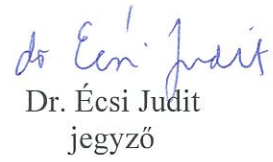 dr Écsi Judit
Dr. Écsi Judit
jegyző